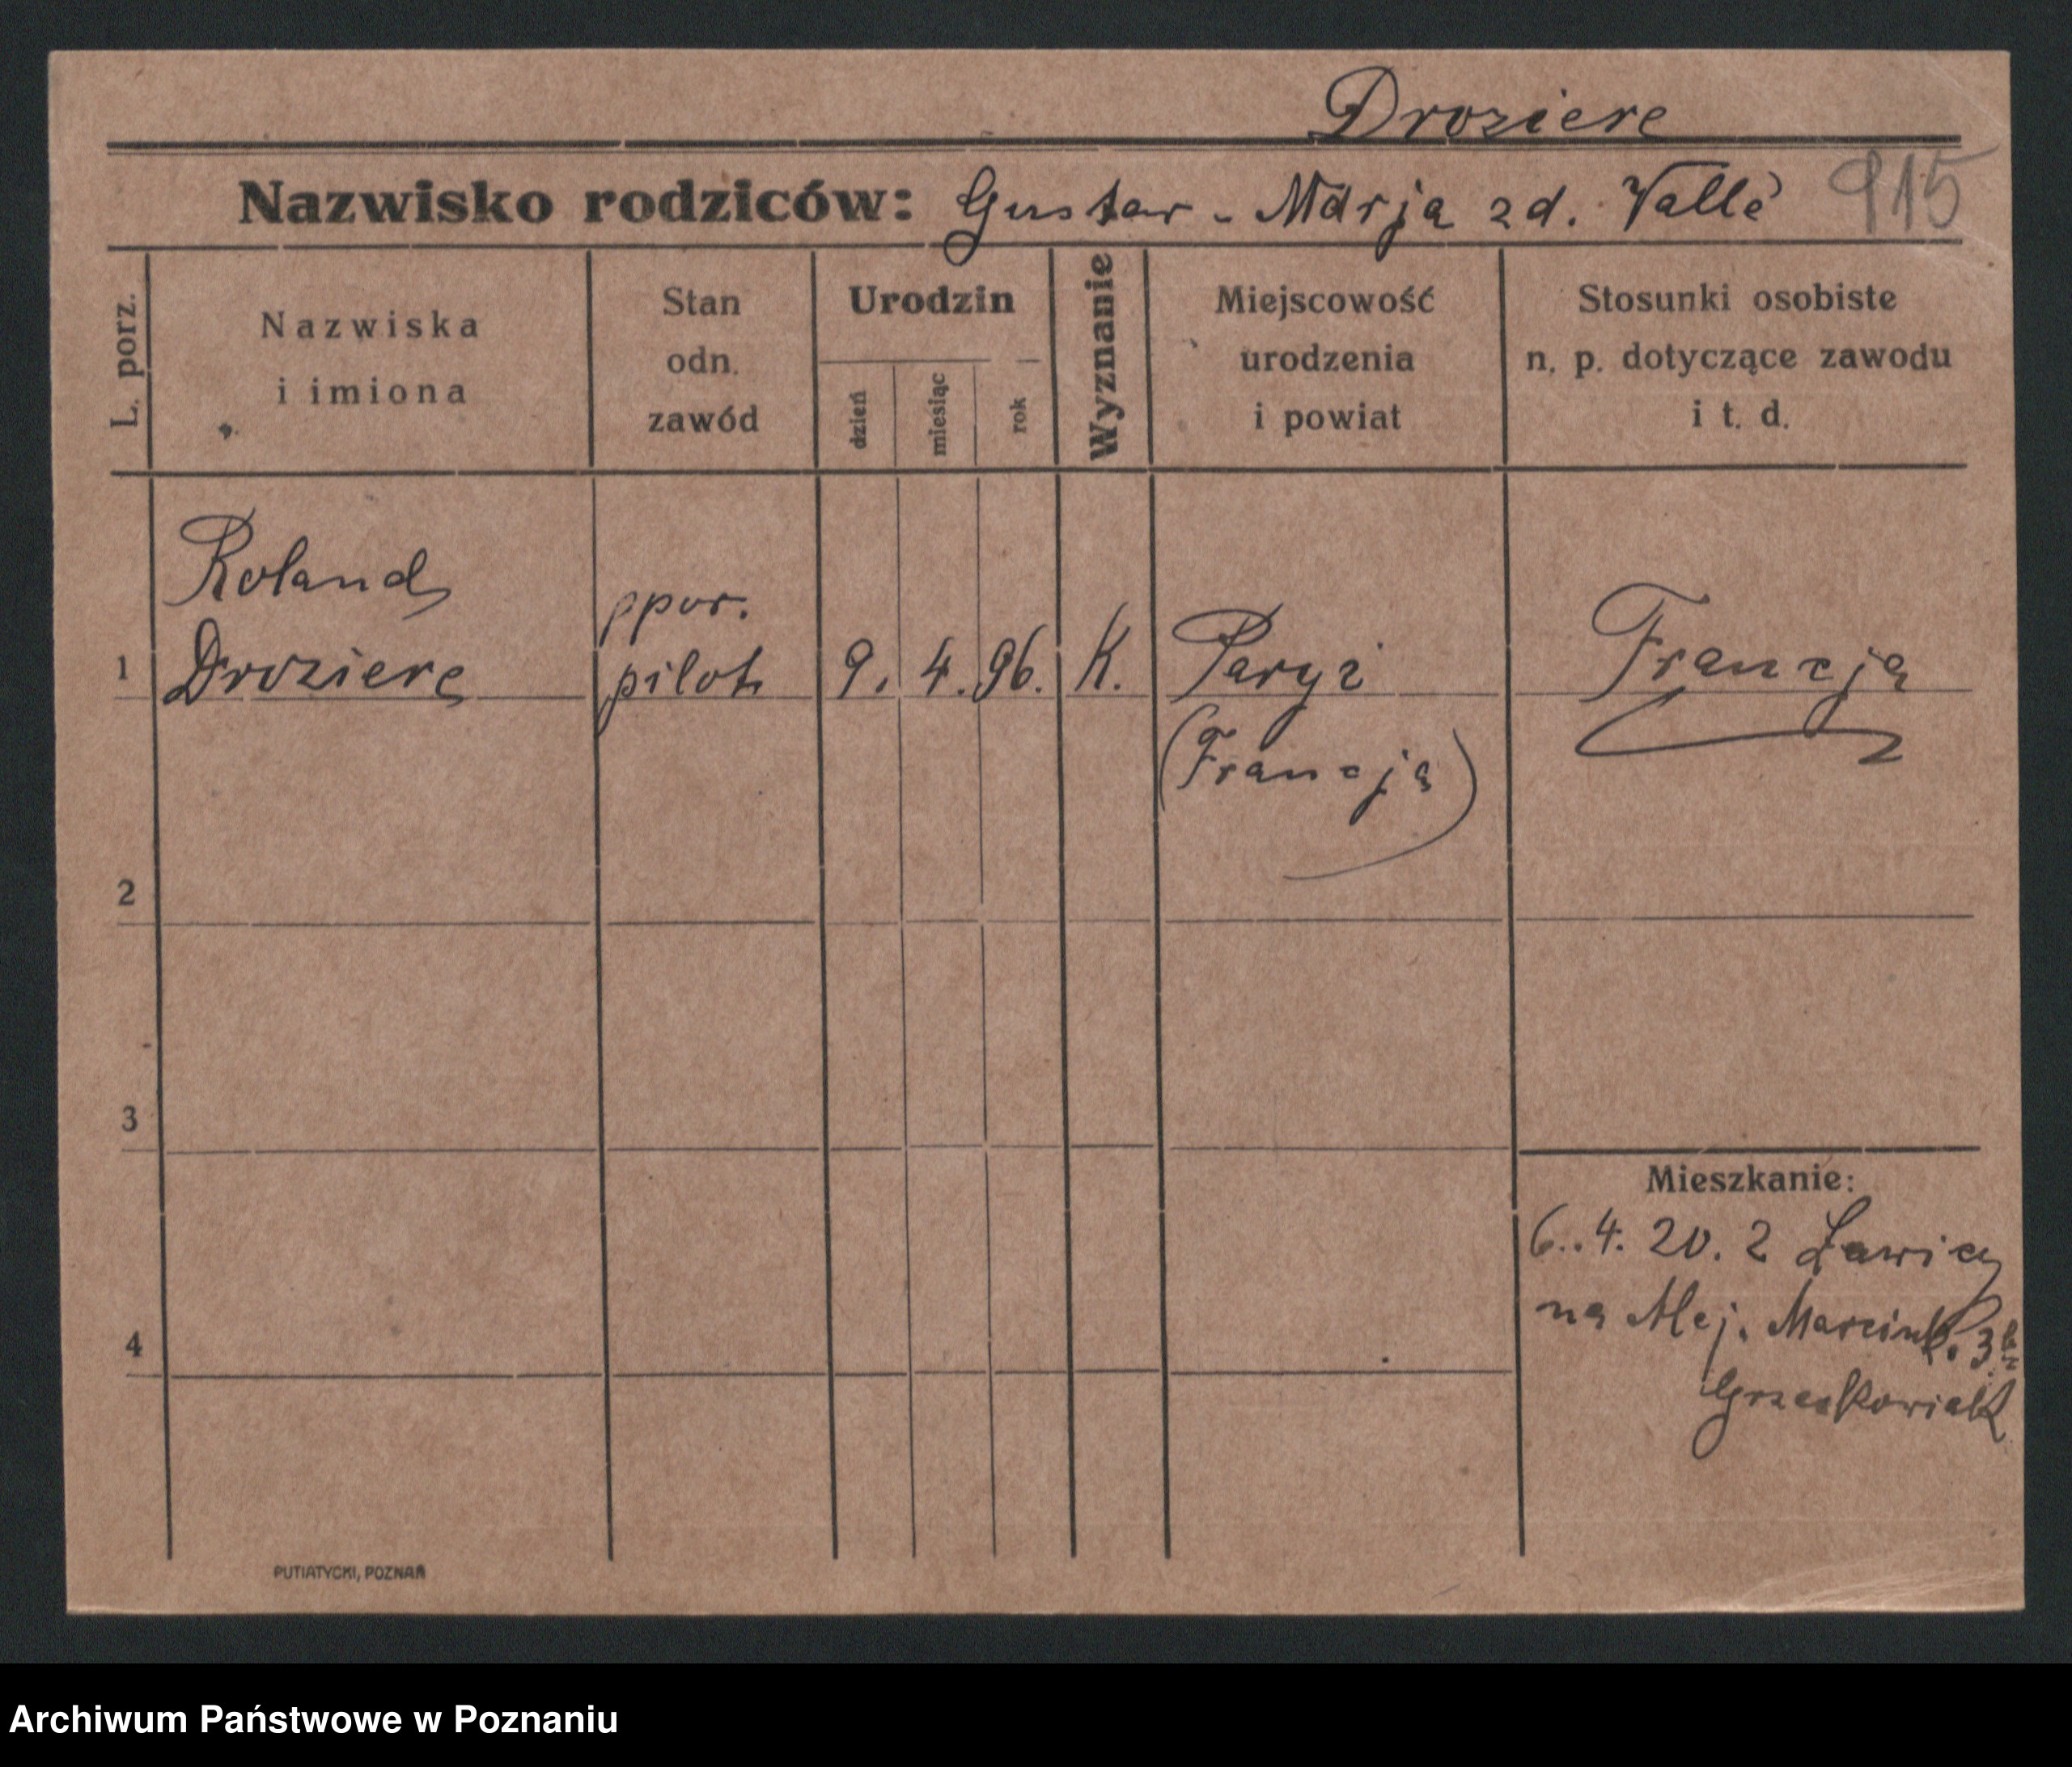 Droziere
Nazwisko rodziców: Gustaw - Marja zd. Vallè 915
L. porz.
Nazwiska
i imiona
Stan
odn.
zawód
Urodzin
dzień
miesiąc
rok
Wyznanie
Miejscowość
urodzenia
i powiat
Stosunki osobiste
n. p. dotyczące zawodu
i t. d.
Roland
ppor.
1 Droziere pilot 9. 4. 96. K. Paryż Francja
(Francja)
2
3
Mieszkanie:
6.4.20. z Ławicy
na Alej. Marcink. 3
4
Grześkowiak
PUTIATYCKI, POZNAŃ
Archiwum Państwowe w Poznaniu